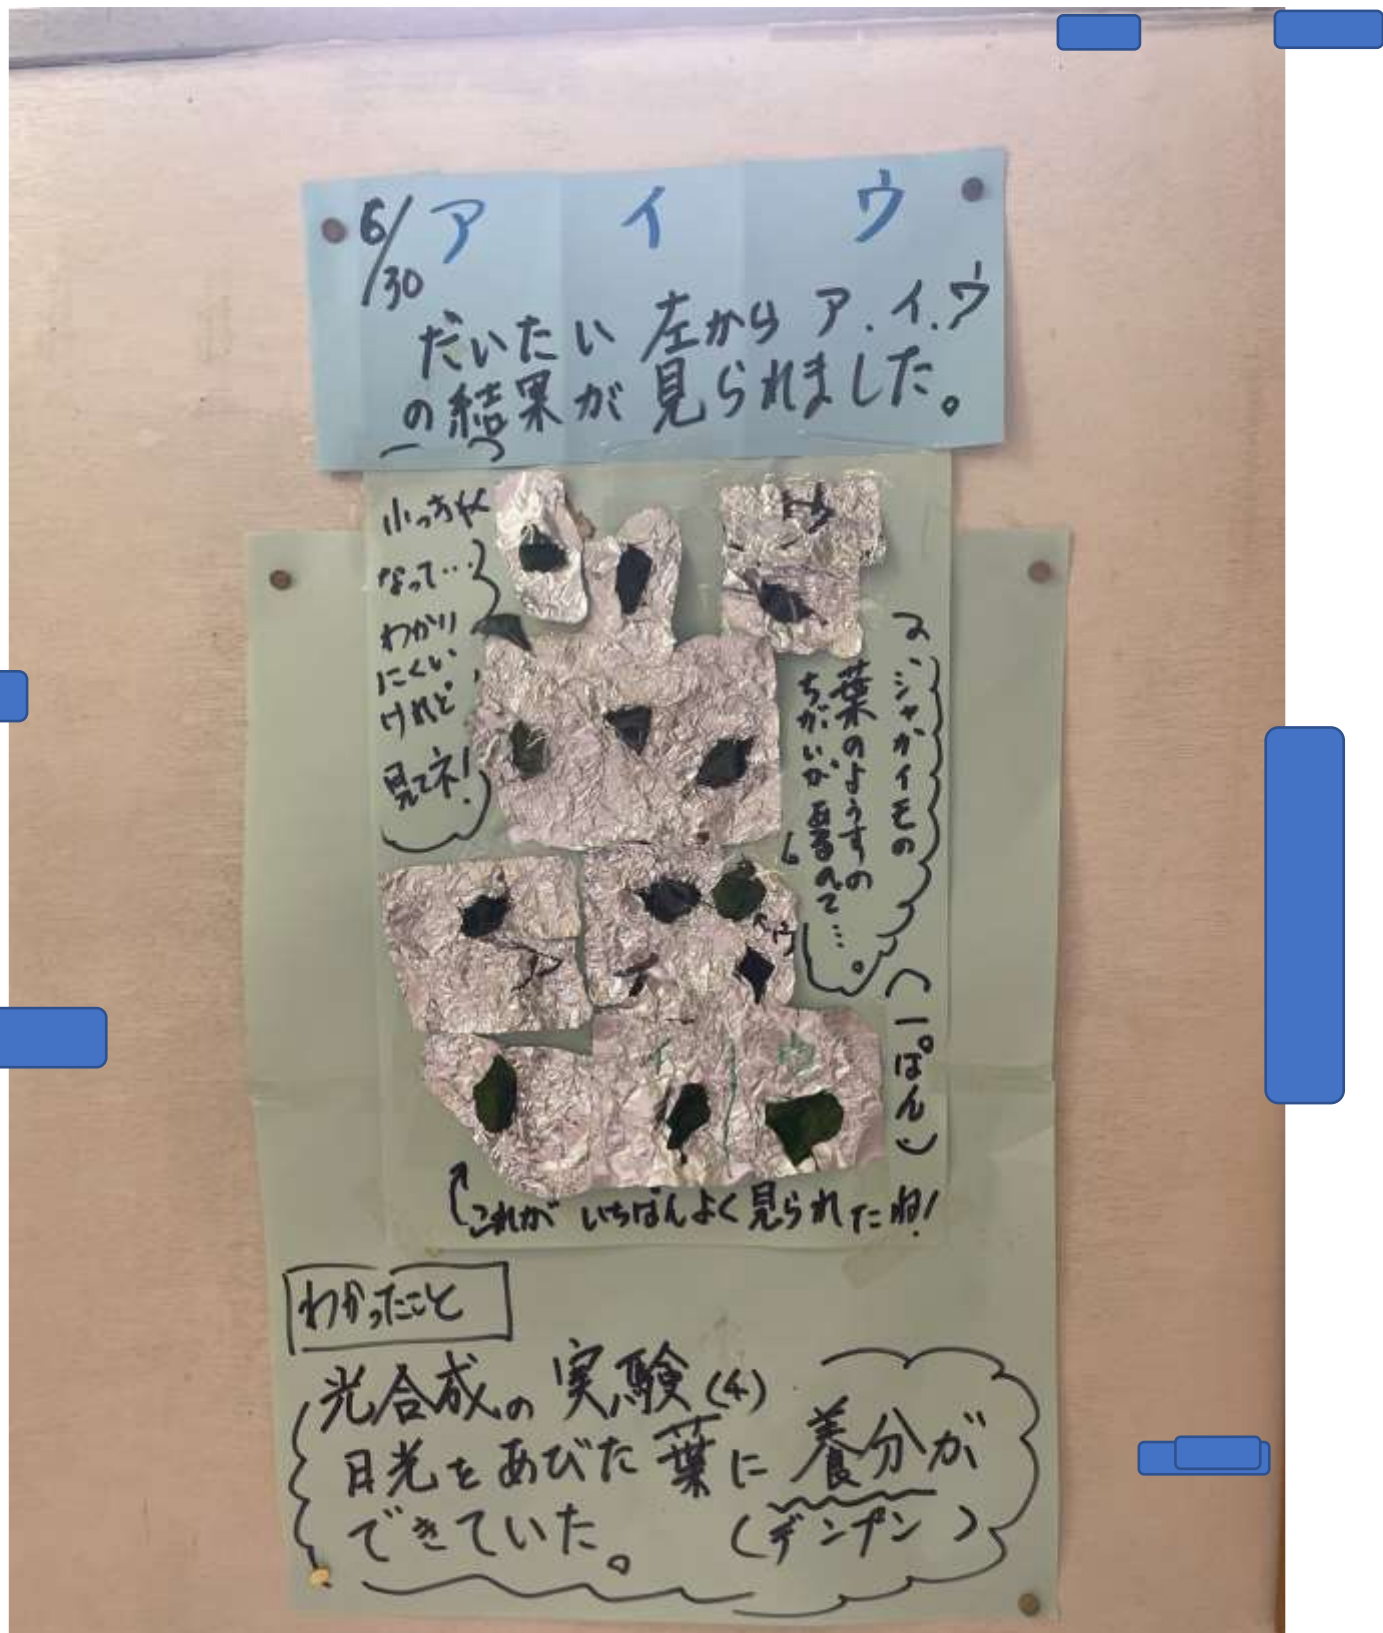 6/30 ア イ ウ
だいたい 左から ア.イ.ウ
の結果が 見られました。
なって…
わかり
にくい
けれど
見てネ!
ジャガイモの
葉のようすの
ちがいが あるので…。
ウ
ア
イ
これが いちばんよく 見られたね!
わかったこと
光合成の 実験(4)
日光をあびた 葉に 養分が
できていた。 (デンプン)